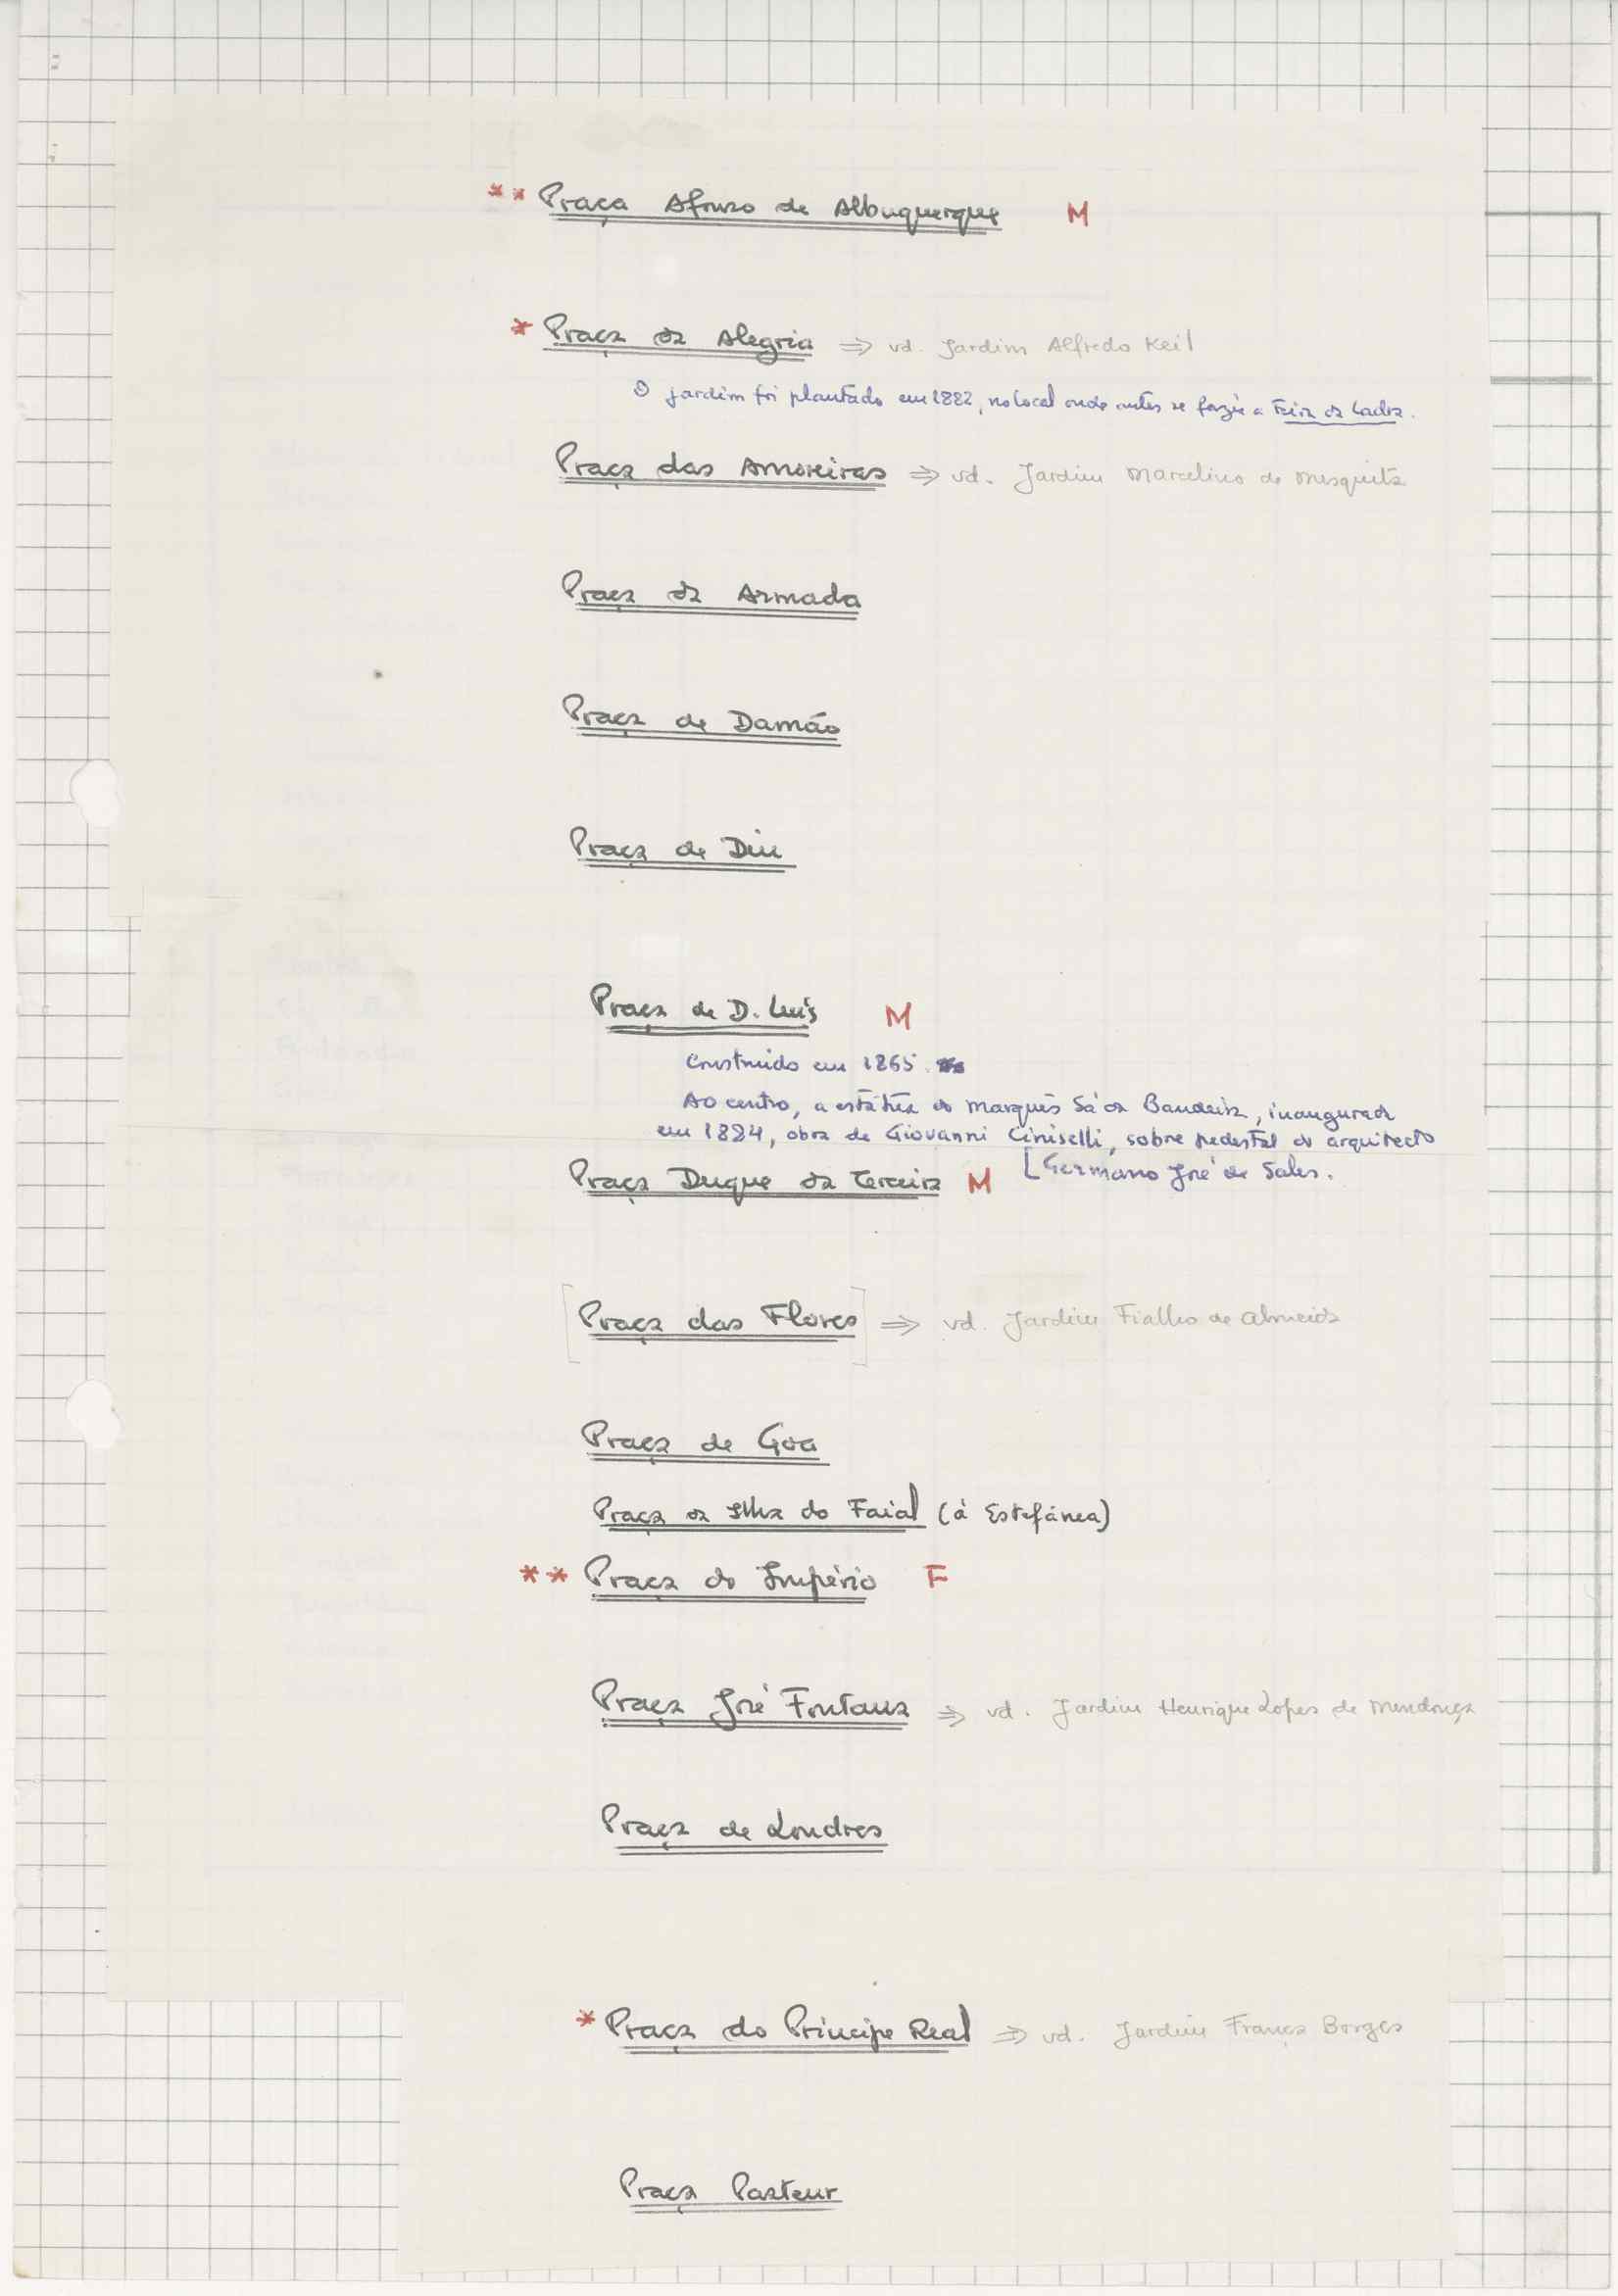 ** Praça Afonso de Albuquerque M
* Praça da Alegria ⇒ vd. Jardim Alfredo Keil
O jardim foi plantado em 1882, no local onde antes se fazia a Feira da Ladra.
Praça das Amoreiras ⇒ vd. Jardim Marcelino de Mesquita
Praça da Armada
Praça de Damão
Praça de Diu
Praça de D. Luís M
Construído em 1865.
Ao centro, a estátua do Marquês Sá da Bandeira, inaugurada
em 1884, obra de Giovanni Ciniselli, sobre pedestal do arquitecto
Germano José de Sales.
Praça Duque da Terceira M
[Praça das Flores] ⇒ vd. Jardim Fialho de Almeida
Praça de Goa
Praça da Ilha do Faial (à Estefânea)
** Praça do Império F
Praça José Fontana ⇒ vd. Jardim Henrique Lopes de Mendonça
Praça de Londres
* Praça do Príncipe Real ⇒ vd. Jardim França Borges
Praça Pasteur